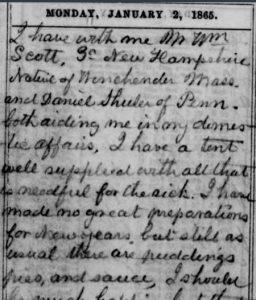 MONDAY, JANUARY 2, 1865.
I have with me Mr Wm
Scott, 3d New Hampshire
Native of Winchender Mass.
and Daniel Shuler of Penn.
both aiding me in my domes-
tic affairs, I have a tent
well supplied with all that
is needful for the sick. I have
made no great preparations
for New years but still as
usual there are puddings
pies, and sauce, I should